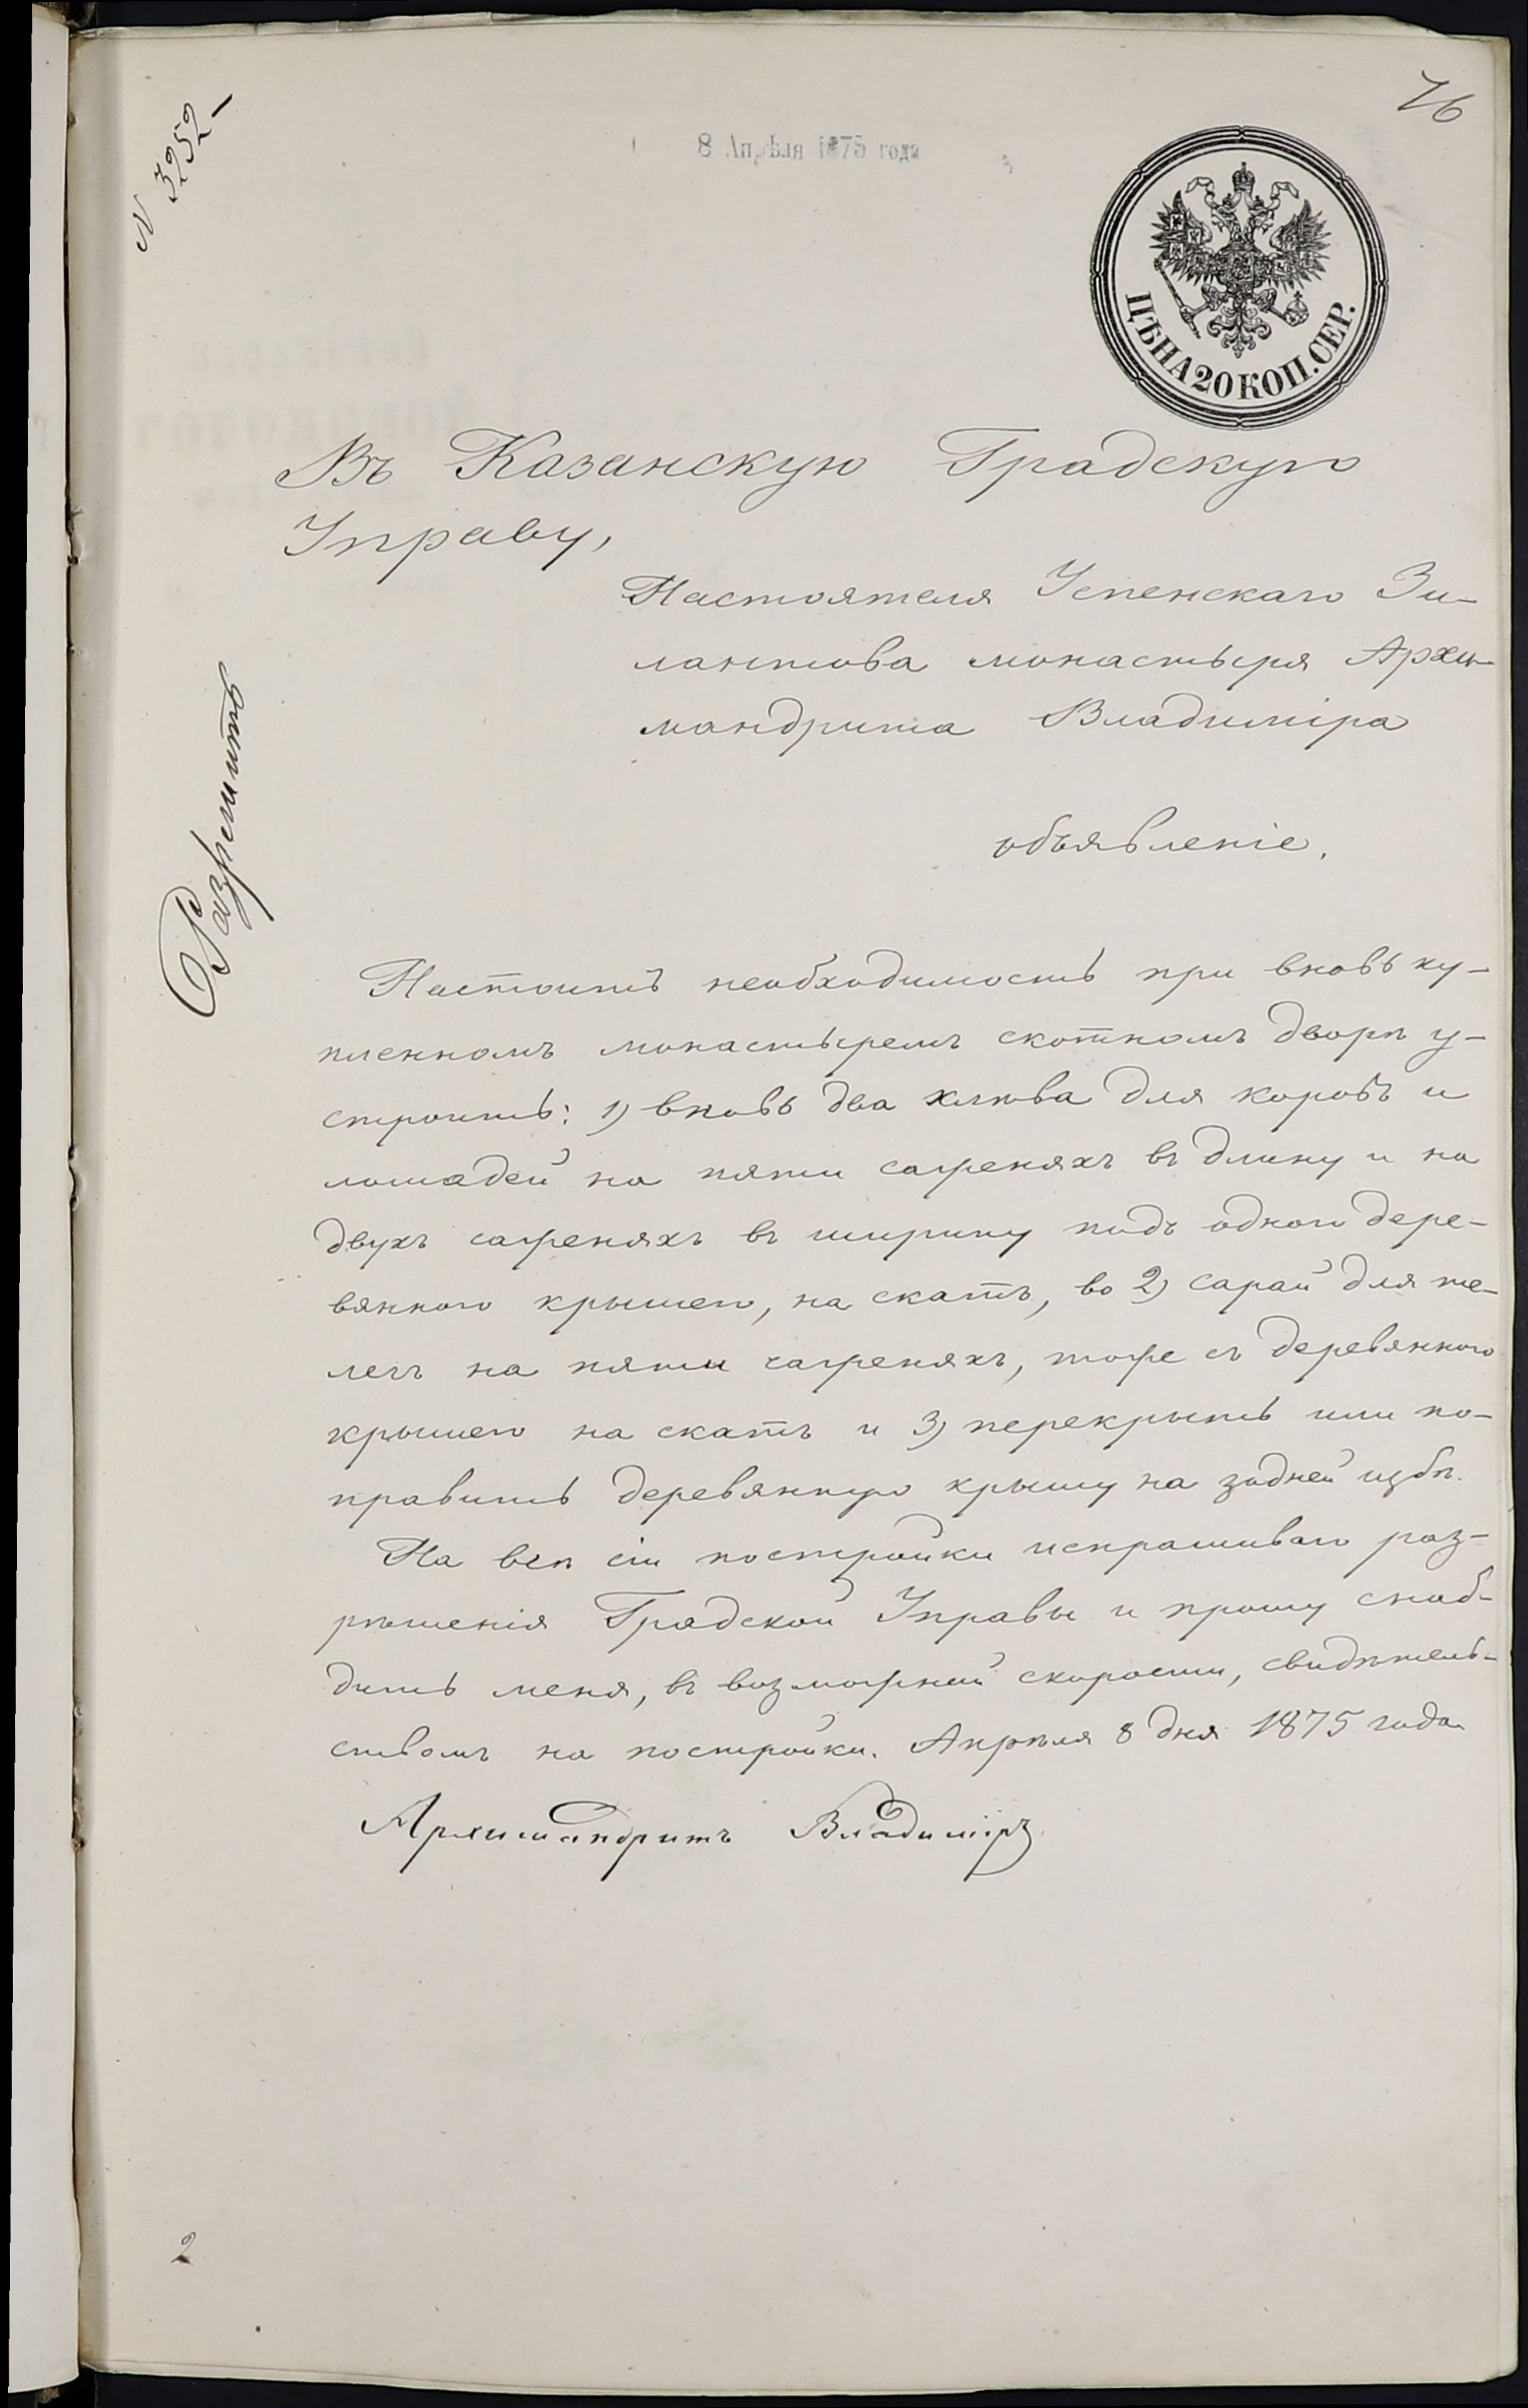 76
N 3252-
8 Апрѣля 1875 года
ЦѢНА 20 КОП. СЕР.
Въ Казанскую Градскую
Управу,
Настоятеля Успенскаго Зи-
лантова монастыря Архи-
мандрита Владиміра
объявленіе.
Разрешить
Настоитъ необходимость при вновь ку-
пленномъ монастыремъ скотномъ дворѣ у-
строить: 1) вновь два хлѣва для коровъ и
лошадей на пяти саженяхъ въ длину и на
двухъ саженяхъ въ ширину подъ одною дере-
вянною крышею, на скатъ, во 2) сарай для те-
легъ на пяти саженяхъ, тоже съ деревянною
крышею на скатъ и 3) перекрыть или по-
править деревянную крышу на задней избѣ.
На всѣ сіи постройки испрашиваю раз-
рѣшенія Градской Управы и прошу снаб-
дить меня, въ возможной скорости, свидѣтель-
ствомъ на постройки. Апрѣля 8 дня 1875 года
Архимандритъ Владиміръ
2